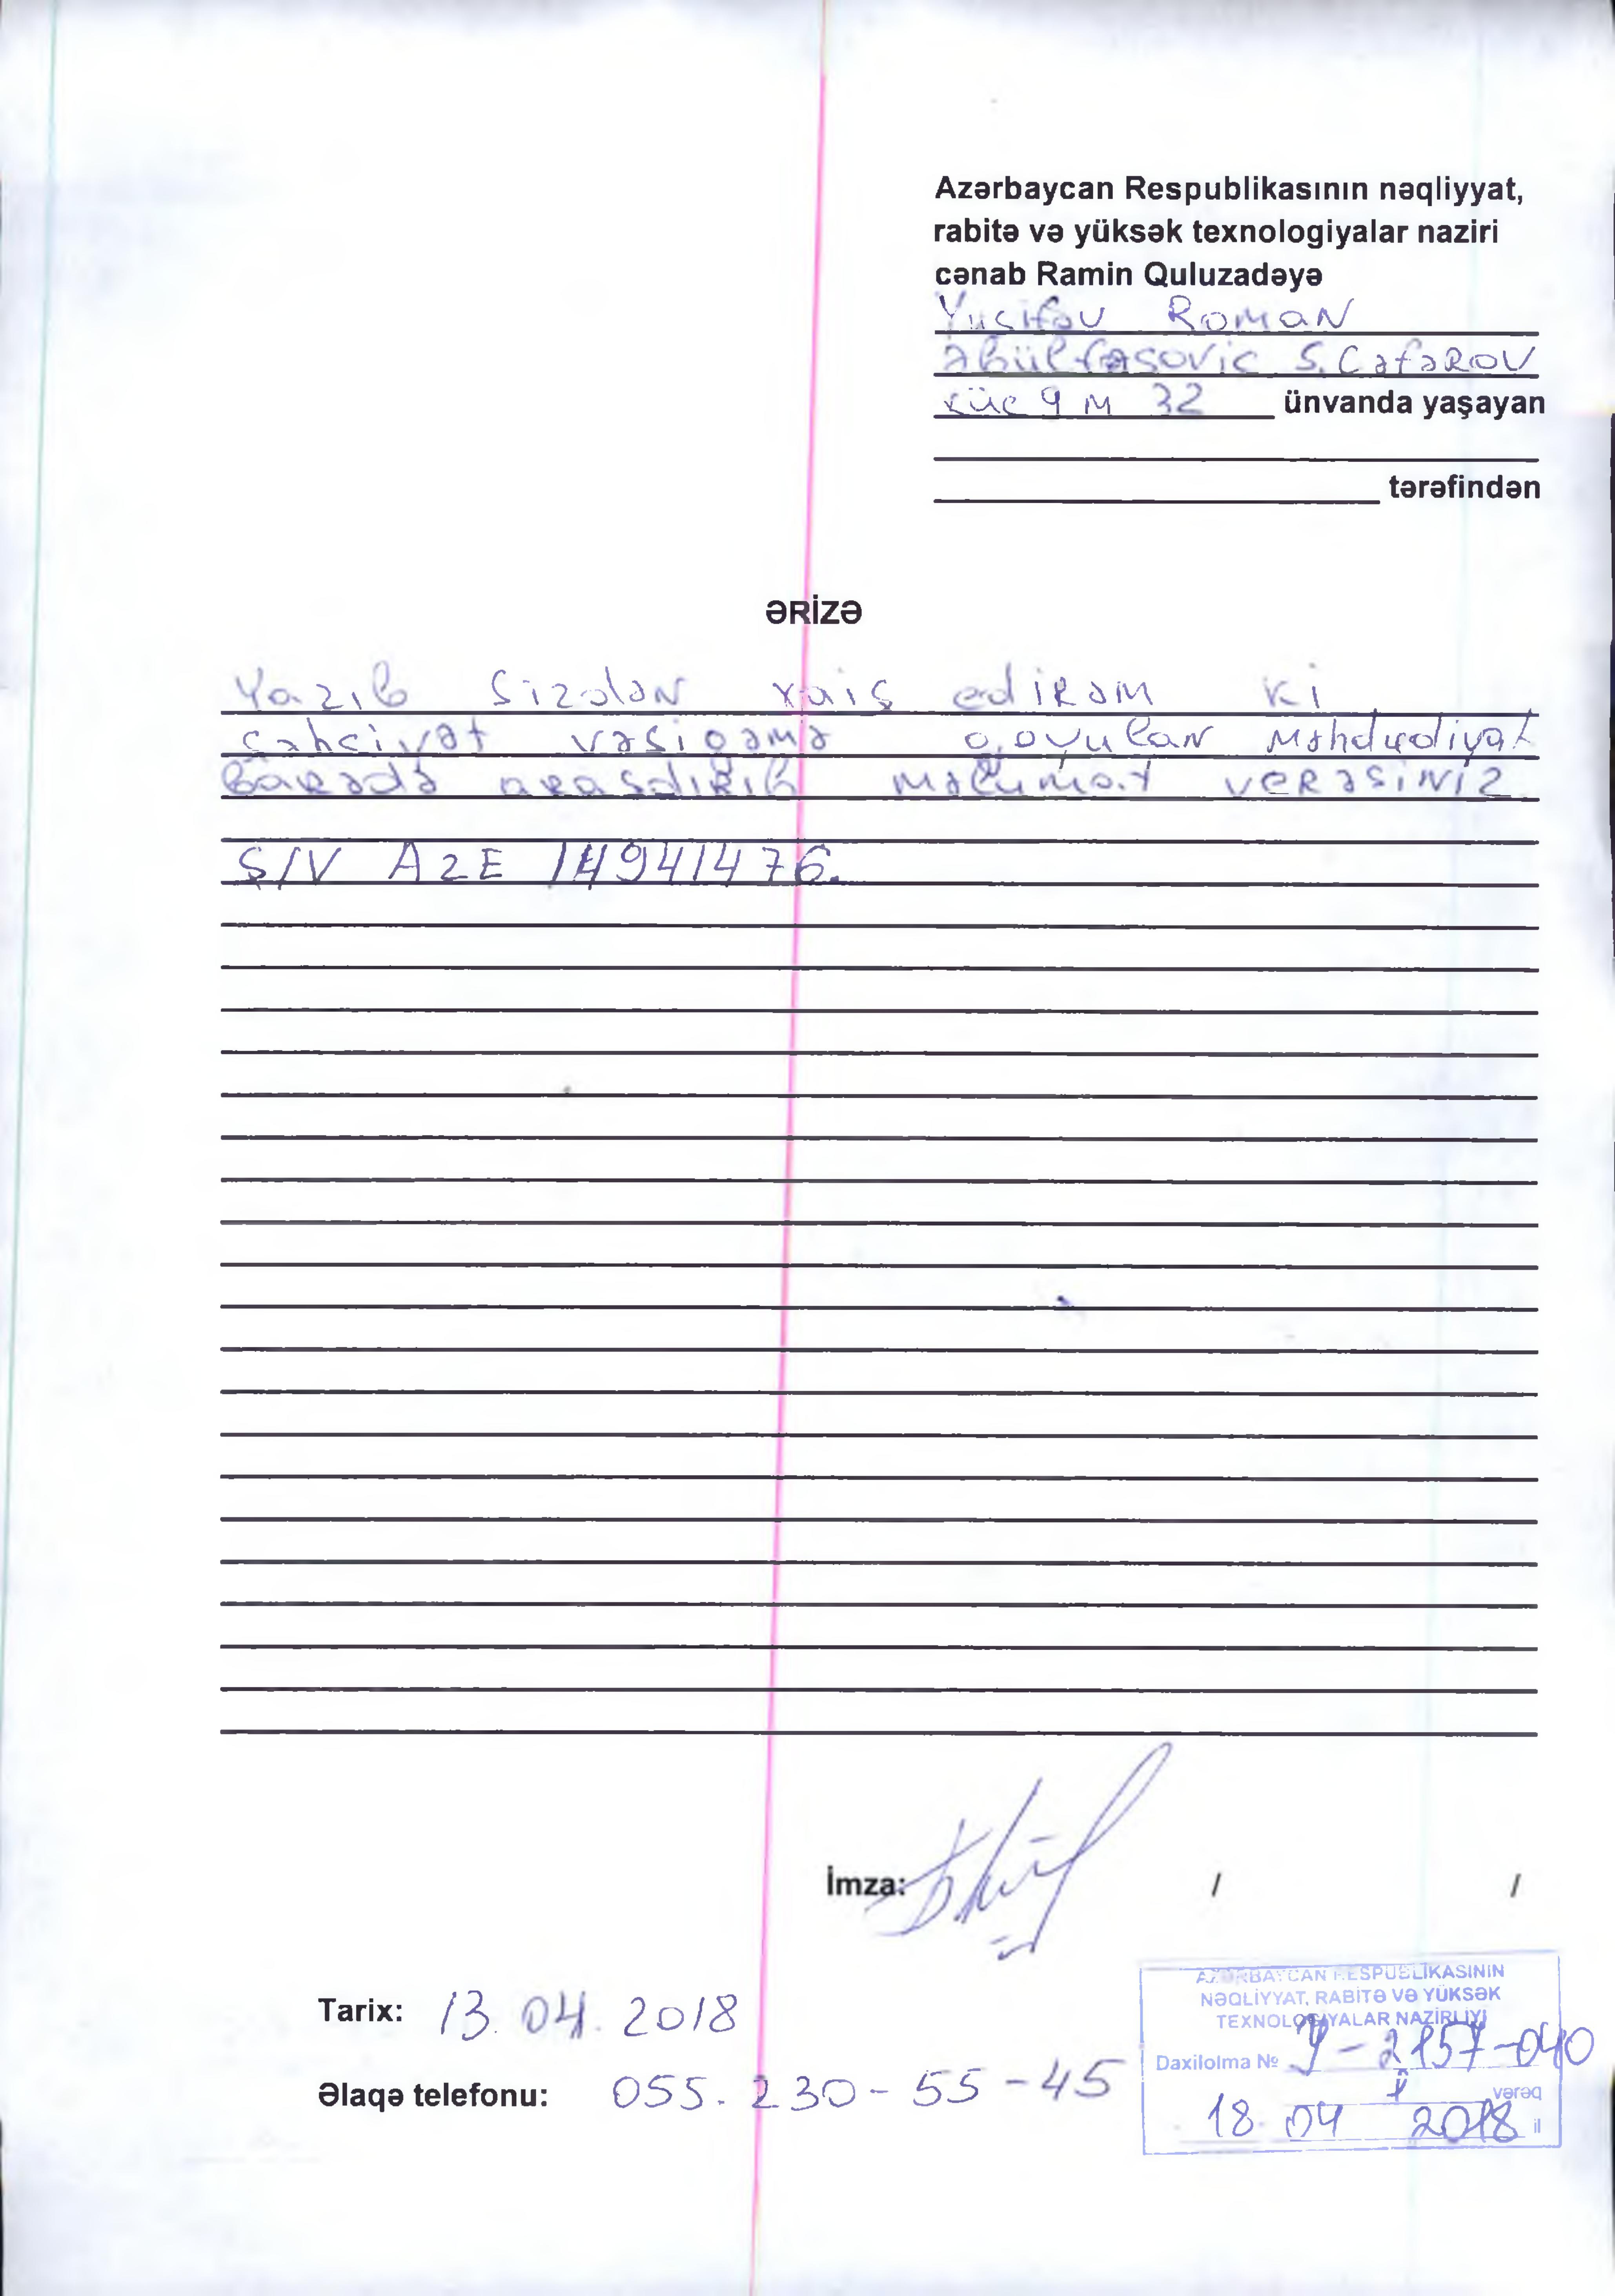 Azərbaycan Respublikasının nəqliyyat,
rabitə və yüksək texnologiyalar naziri
cənab Ramin Quluzadəyə
Yusifov Roman
Əbülfəsovic S. Cəfərov
küç 9 m 32 ünvanda yaşayan
tərəfindən
ƏRİZƏ
Yazıb Sizdən xaiş edirəm ki
şəhsiyyət vəsiqəmə qoyulan məhdudiyət
barədə arasdırıb məlumat verəsiniz
Ş/V AZE 14941476.
İmza: / /
Tarix: 13.04.2018
Əlaqə telefonu: 055.230-55-45
AZƏRBAYCAN RESPUBLİKASININ
NƏQLİYYAT, RABİTƏ VƏ YÜKSƏK
TEXNOLOGİYALAR NAZİRLİYİ
Daxilolma № Y-2157-040
vərəq
18.04 2018 il